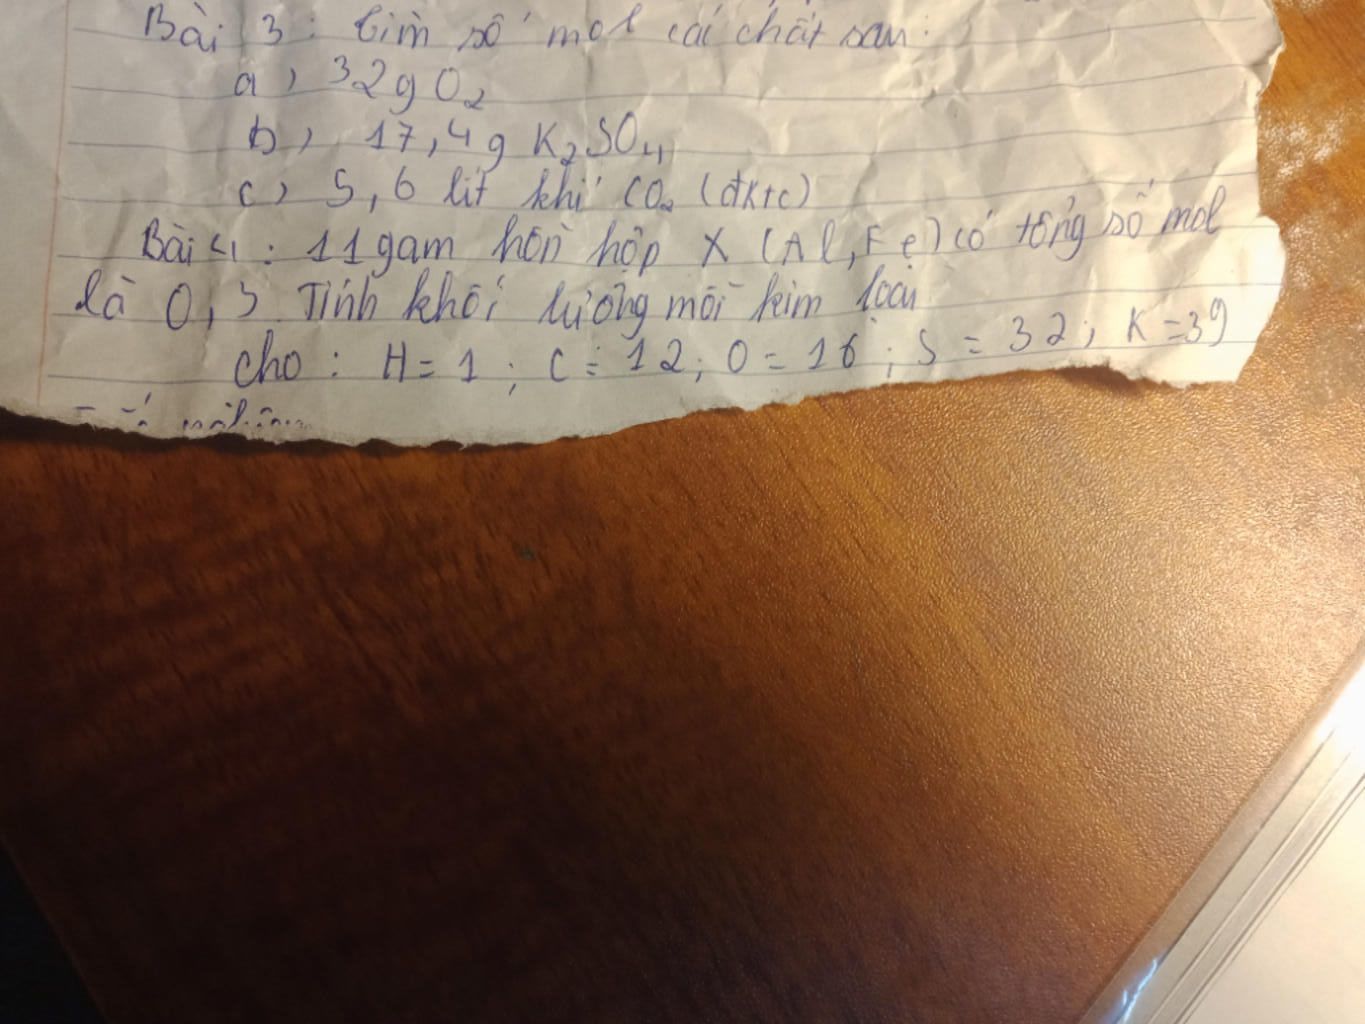 Bài 3: tìm số mol các chất sau:
a, 32g O₂
b, 17,4g K₂SO₄
c, 5,6 lít khí CO₂ (đktc)
Bài 4: 11gam hỗn hợp X (Al, Fe) có tổng số mol
là 0,3. Tính khối lượng mỗi kim loại
cho: H = 1; C = 12; O = 16; S = 32; K = 39